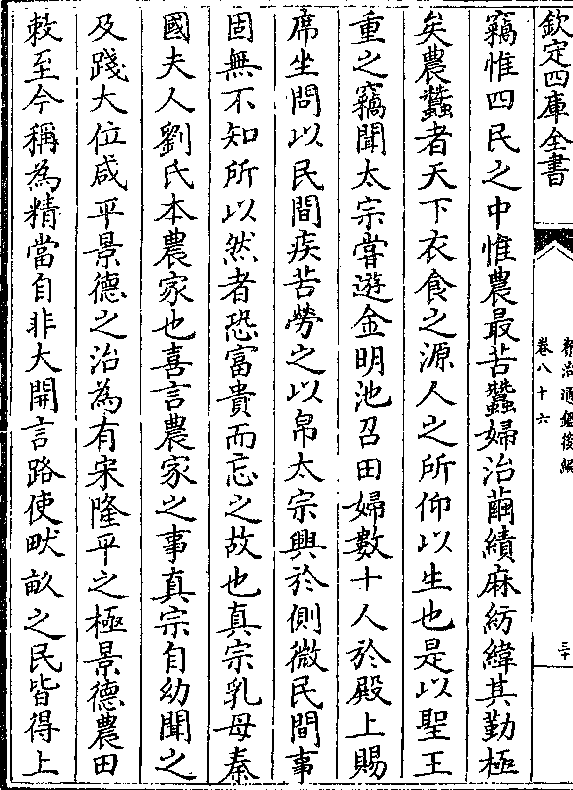 欽定四庫全書
資治通鑑後編
卷八十六
三十
竊惟四民之中惟農最苦蠶婦治繭績麻紡緯其勤極
矣農蠶者天下衣食之源人之所仰以生也是以聖王
重之竊聞太宗嘗遊金明池召田婦數十人於殿上賜
席坐問以民間疾苦勞之以帛太宗興於側微民間事
固無不知所以然者恐富貴而忘之故也真宗乳母秦
國夫人劉氏本農家也喜言農家之事真宗自幼聞之
及踐大位咸平景德之治為有宋隆平之極景德農田
敕至今稱為精當自非大開言路使畎畝之民皆得上